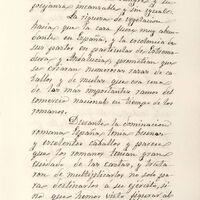 pujanza incansable y sin igual.
La riqueza de vegetacion
hacia que la caza fuese muy abun-
dante en España, y la excelencia de
sus pastos en particular de Extrema-
dura y Andalucia, permitian que
se criaran numerosas razas de ca-
ballos y de mulas que era una
de las mas importantes ramos del
comercio nacional en tiempo de los
romanos.
Durante la dominacion
romana España tenia buenos
y excelentes caballos y parece
que los romanos tenian gran
cuidado de las castas, y trata-
ron de multiplicarlos no solo pa-
ra destinarlos a su ejercito, si
no que hemos visto figurar al